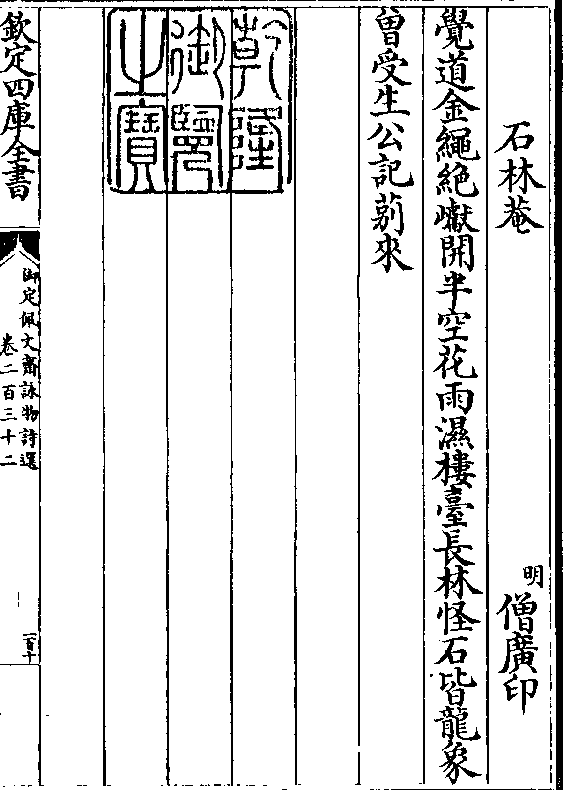 石林菴
明 僧廣印
覺道金繩絶巘開半空花雨濕樓臺長林怪石皆龍象
曾受生公記莂來
乾隆御覽之寶
欽定四庫全書
御定佩文齋詠物詩選
卷二百三十二